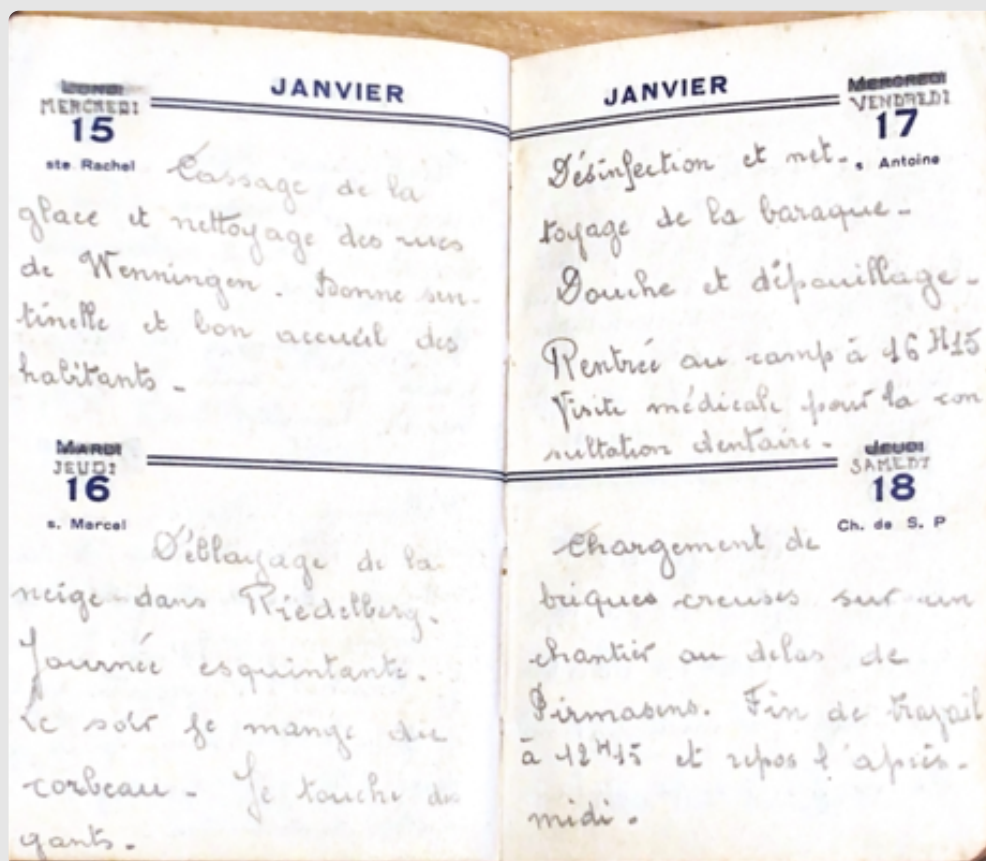 JANVIER
LUNDI
MERCREDI
15
ste Rachel
Cassage de la
glace et nettoyage des rues
de Wenningen. Bonne sen-
tinelle et bon accueil des
habitants -
MARDI
JEUDI
16
s. Marcel
Déblayage de la
neige dans Riedelberg.
Journée esquintante.
Le soir je mange du
corbeau - Je touche des
gants -
JANVIER
MERCREDI
VENDREDI
17
s. Antoine
Désinfection et net-
toyage de la baraque -
Douche et dépouillage -
Rentrée au camp à 16 H15
Visite médicale pour la con
sultation dentaire -
JEUDI
SAMEDI
18
Ch. de S. P
Chargement de
briques creuses sur un
chantier au delas de
Pirmasens. Fin de travail
à 12 H15 et repos l'après-
midi.